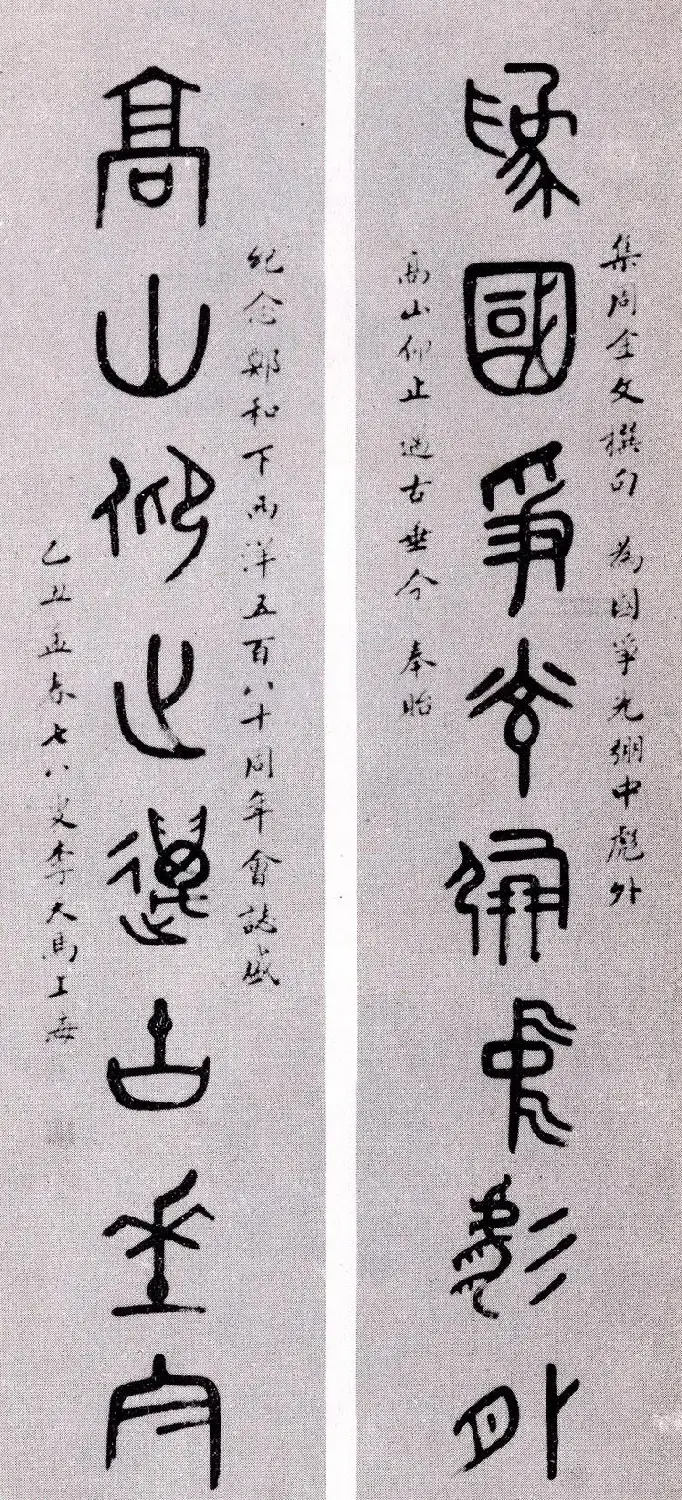 集周金文撰句 為國爭光弸中彪外
為國爭光弸中彪外
高山仰止邁古垂今 奉貽
紀念鄭和下西洋五百八十周年會誌盛
高山仰止邁古垂今
乙丑孟春七八叟李天馬上海